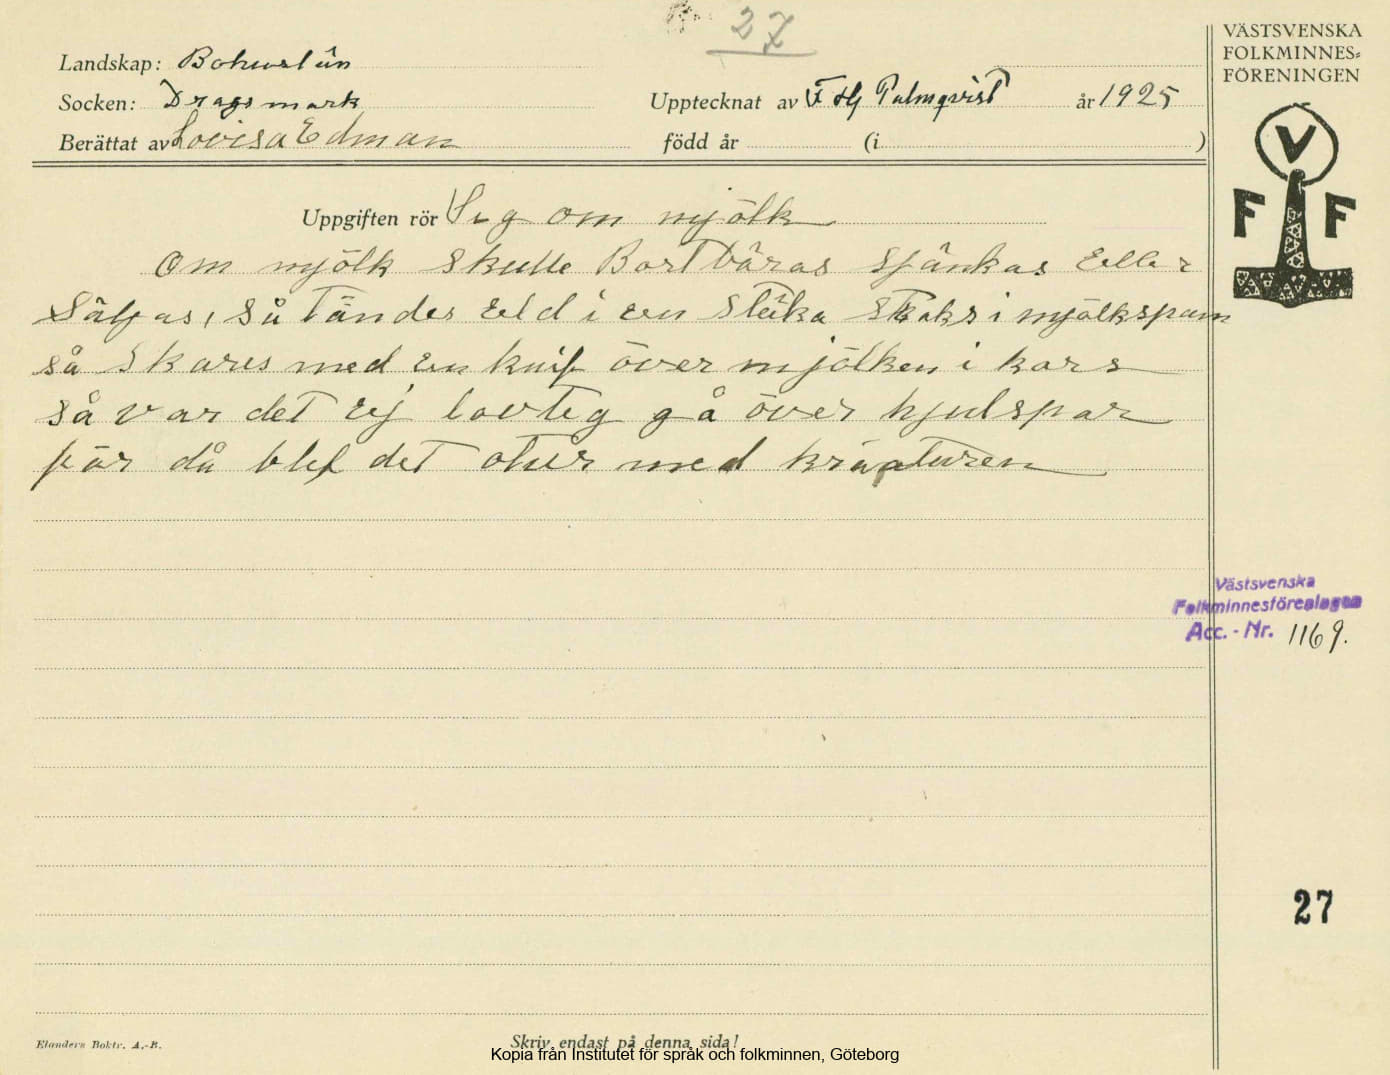 27
VÄSTSVENSKA
FOLKMINNES=
FÖRENINGEN
Landskap: Bohuslän
Socken: Dragsmark
Upptecknat av F Hj Palmqvist år 1925
Berättat av Lovisa Edman född år (i )
V
F F
Uppgiften rör Seg om mjölk
Om mjölk skulle Bortbäras sjänkas eller
Säljas, så tändes eld i en sticka staks i mjölkspann
så skares med en knif över mjölken i kors
så var det ej lovlig gå över hjulspar
för då blef det otur med kräaturen
Västsvenska
Folkminnesföreningen
Acc.-Nr. 1169.
27
Elanders Boktr. A.-B.
Skriv endast på denna sida!
Kopia från Institutet för språk och folkminnen, Göteborg